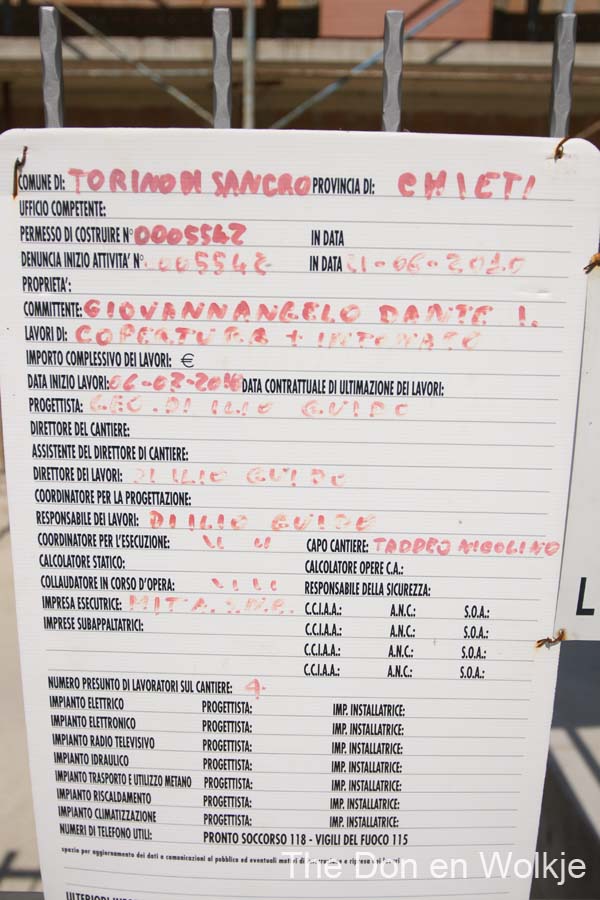 COMUNE DI: TORINO DI SANGRO PROVINCIA DI: CHIETI
UFFICIO COMPETENTE:
PERMESSO DI COSTRUIRE N° 0005542 IN DATA
DENUNCIA INIZIO ATTIVITA' N° 0005542 IN DATA 21-06-2010
PROPRIETA':
COMMITTENTE: GIOVANNANGELO DANTE I.
LAVORI DI: COPERTURA + INTONACO
IMPORTO COMPLESSIVO DEI LAVORI: €
DATA INIZIO LAVORI: DATA CONTRATTUALE DI ULTIMAZIONE DEI LAVORI:
PROGETTISTA: GEO. DI ILIO GUIDO
DIRETTORE DEL CANTIERE:
ASSISTENTE DEL DIRETTORE DI CANTIERE:
DIRETTORE DEI LAVORI: DI ILIO GUIDO
COORDINATORE PER LA PROGETTAZIONE:
RESPONSABILE DEI LAVORI: DI ILIO GUIDO
COORDINATORE PER L'ESECUZIONE: " " CAPO CANTIERE: TADDEO NICOLINO
CALCOLATORE STATICO: CALCOLATORE OPERE C.A.:
COLLAUDATORE IN CORSO D'OPERA: " " RESPONSABILE DELLA SICUREZZA:
IMPRESA ESECUTRICE: C.C.I.A.A.: A.N.C.: S.O.A.:
IMPRESE SUBAPPALTATRICI: C.C.I.A.A.: A.N.C.: S.O.A.:
C.C.I.A.A.: A.N.C.: S.O.A.:
C.C.I.A.A.: A.N.C.: S.O.A.:
NUMERO PRESUNTO DI LAVORATORI SUL CANTIERE: 4
IMPIANTO ELETTRICO PROGETTISTA: IMP. INSTALLATRICE:
IMPIANTO ELETTRONICO PROGETTISTA: IMP. INSTALLATRICE:
IMPIANTO RADIO TELEVISIVO PROGETTISTA: IMP. INSTALLATRICE:
IMPIANTO IDRAULICO PROGETTISTA: IMP. INSTALLATRICE:
IMPIANTO TRASPORTO E UTILIZZO METANO PROGETTISTA: IMP. INSTALLATRICE:
IMPIANTO RISCALDAMENTO PROGETTISTA: IMP. INSTALLATRICE:
IMPIANTO CLIMATIZZAZIONE PROGETTISTA: IMP. INSTALLATRICE:
NUMERI DI TELEFONO UTILI: PRONTO SOCCORSO 118 - VIGILI DEL FUOCO 115
spazio per aggiornamento dei dati e comunicazioni al pubblico ed eventuali motivi di e ripresa dei lavori
The Don en Wolkje
L